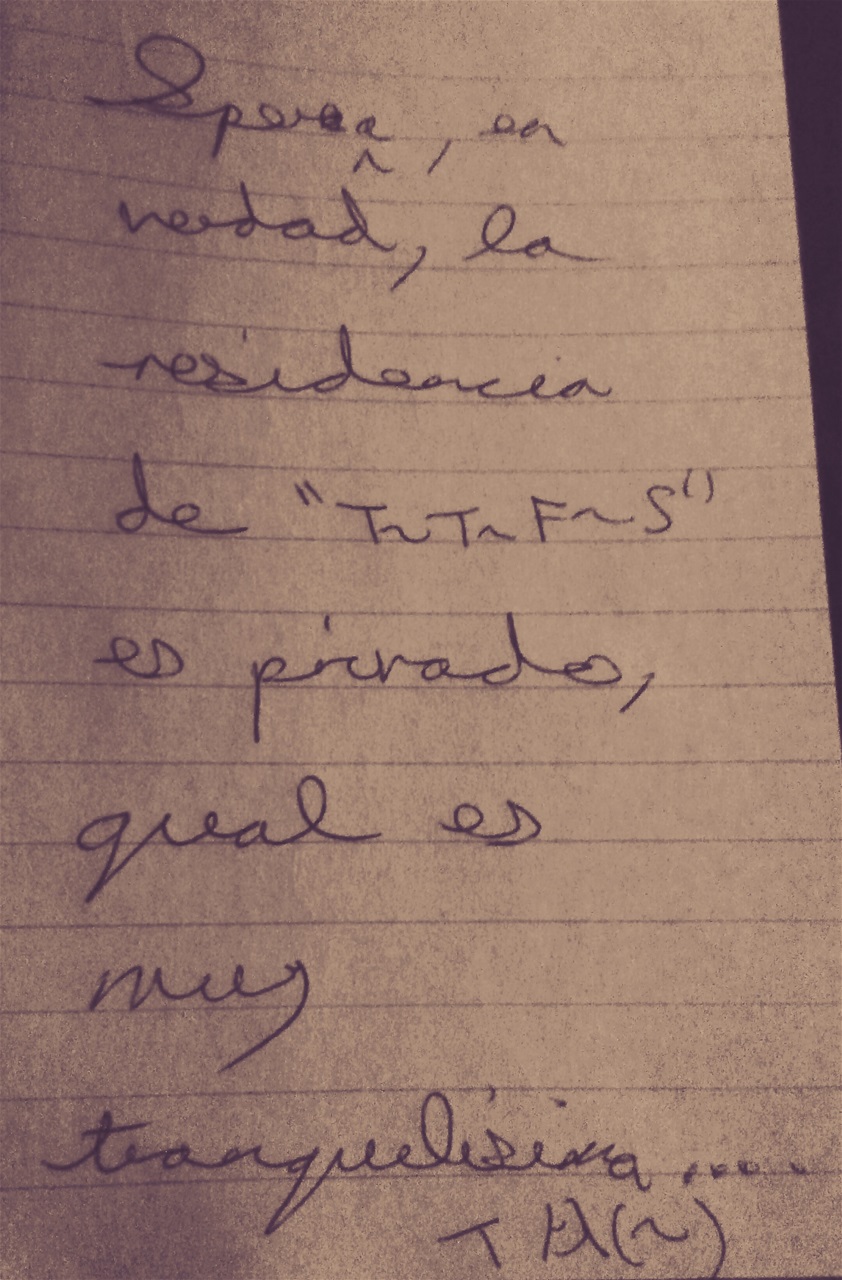 Spera, en
verdad, la
residencia
de "T~T~F~S"
es privado,
qual es
muy
tranquelísima....